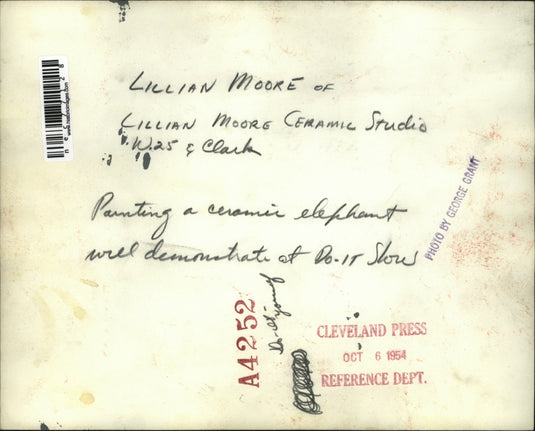 LILLIAN MOORE OF
LILLIAN MOORE CERAMIC Studio
W.25 & Clark
Painting a ceramic elephant
will demonstrate at DO-IT Show
PHOTO BY GEORGE GRANT
A4252
CLEVELAND PRESS
OCT 6 1954
REFERENCE DEPT.